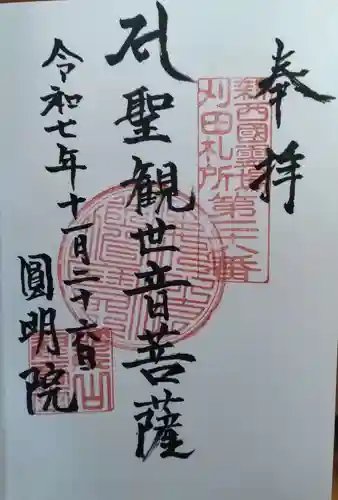 奉拝
新西國霊場
刈田札所第二六番
聖観世音菩薩
令和七年十一月二十六日
圓明院